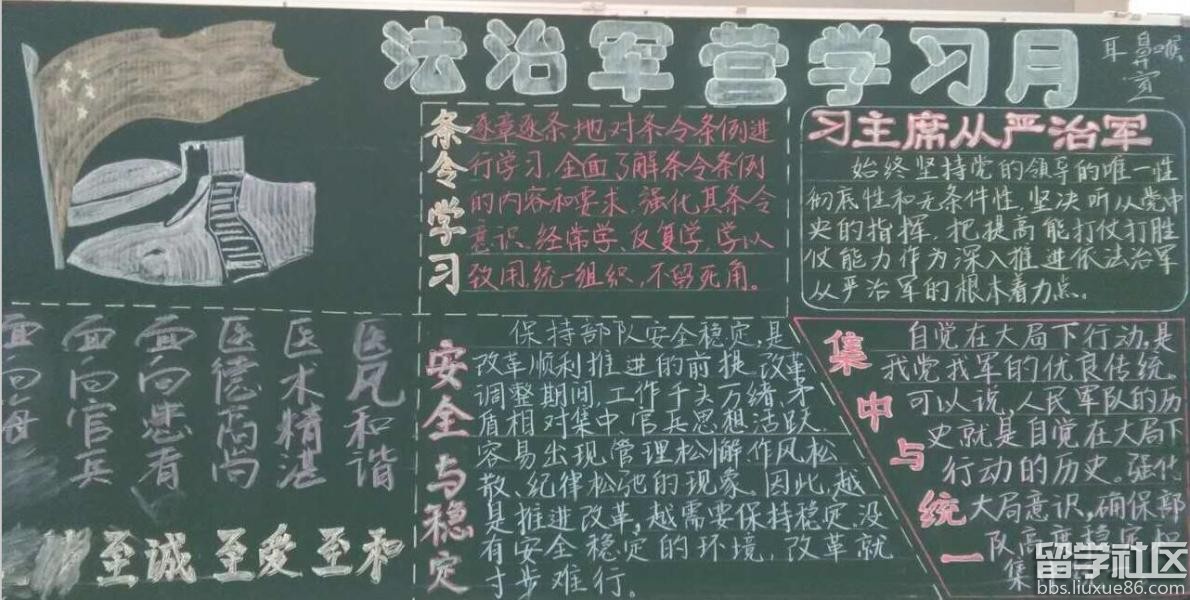 法治军营学习月
耳鼻喉
室
条令学习
逐章逐条地对条令条例进
行学习,全面了解条令条例
的内容和要求,强化其条令
意识,经常学、反复学,学以
致用,统一组织,不留死角。
习主席从严治军
始终坚持党的领导的唯一性
彻底性和无条件性,坚决听从党中
央的指挥,把提高能打仗打胜
仗能力作为深入推进依法治军
从严治军的根本着力点。
面向
面向官兵
面向患者
医德高尚
医术精湛
医风和谐
至诚 至爱 至和
安全与稳定
保持部队安全稳定,是
改革顺利推进的前提,改革
调整期间,工作千头万绪,矛
盾相对集中,官兵思想活跃,
容易出现管理松懈作风松
散、纪律松弛的现象。因此,越
是推进改革,越需要保持稳定,没
有安全稳定的环境,改革就
寸步难行。
集中与统一
自觉在大局下行动,是
我党我军的优良传统。
可以说,人民军队的历
史就是自觉在大局下
行动的历史。强化
大局意识,确保部
队高度稳定和
集
留学社区
bbs.liuxue86.com